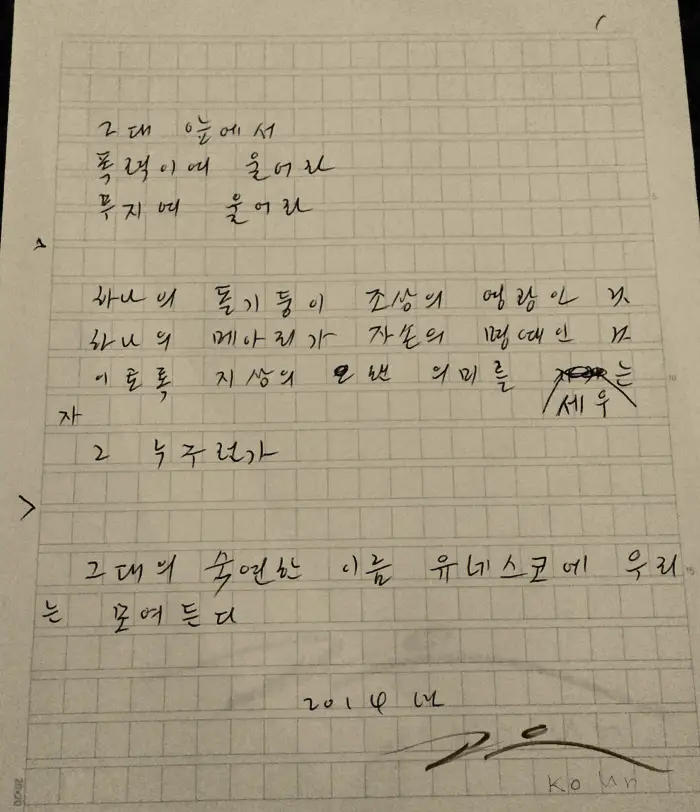 그대 앞에서
폭력이여 울어라
무지여 울어라
하나의 돌기둥이 조상의 영광인 것
하나의 메아리가 자손의 명예인 것
이토록 지상의 오랜 의미를 는
세우
자
그 누구런가
그대의 숙연한 이름 유네스코에 우리
는 모여든다
2014 년
고은
Ko Un